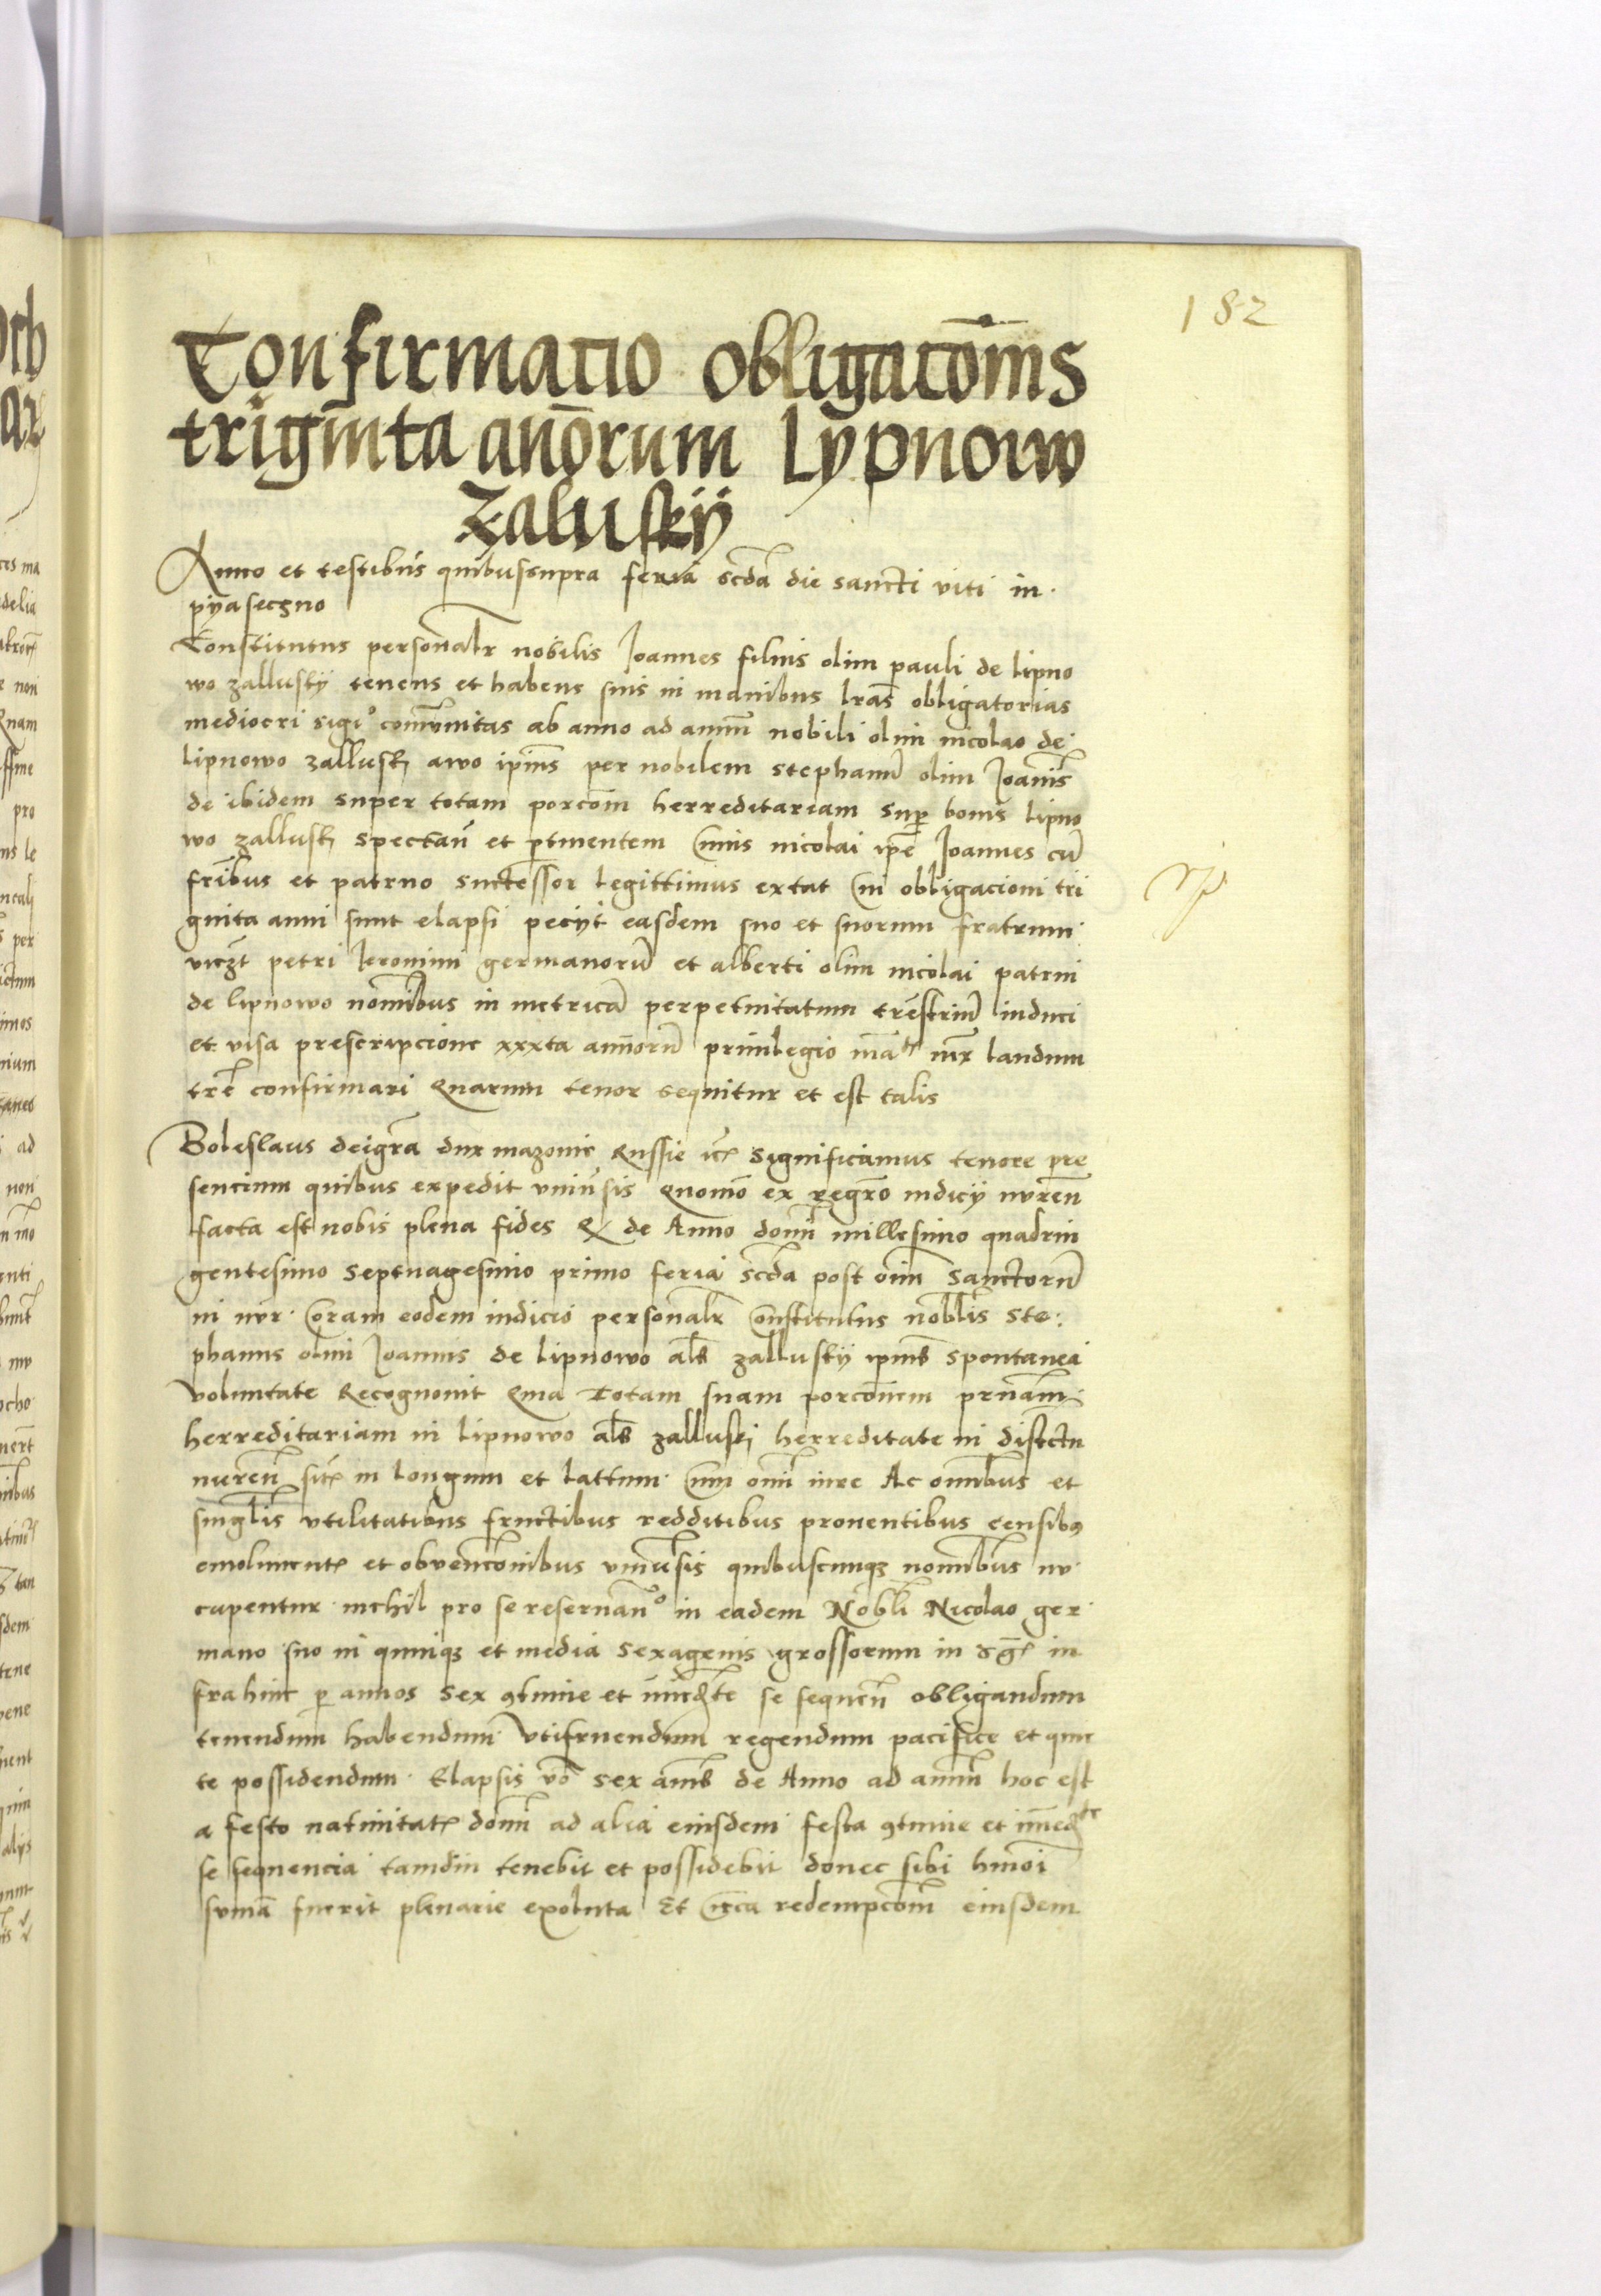 182
Confirmacio obligacōnis
triginta annōrum Lypnowo
Zaluskij
Anno et testibus quibus supra feria scđa die sancti viti in
pyaseczno
Constitutus personalr nobilis Joannes filius olim pauli de lipno
wo zalluskij tenens et habens suis in manibus lras obligatorias
mediocri sigło comunitas ab anno ad annum nobili olim nicolao de
lipnowo zallusk awo ipius per nobilem stephanu olim Joanis
de ibidem super totam porcoem herreditariam sup bonis lipno
wo zallusk spectan et ptinentem Cuius nicolai ipe Joannes cu
fribus et patruo suctessor legittimus extat Cui obligacioni tri
ginta anni sunt elapsi peciyt easdem suo et suorum fratrum
viczt petri Jeronimi germanoru et alberti olim nicolai patrui
de lipnowo nominibus in metrica perpetuitatum trestrium induci
et visa prescripcione xxxta annoru priuilegio laudum
tre confirmari Quarum tenor sequitur et est talis
Boleslaus dei gra dux mazouie Russie etc significamus tenore pre
sencium quibus expedit vniuersis Quomo ex regro iudicij nuren
facta est nobis plena fides Q de Anno domi millesimo quadrin
gentesimo septuagesimo primo feria scda post oim sanctoru
in nur Coram eodem iudicio personalr Constitutus noblis Ste
phanus olim Joannis de lipnowo als zalluskij ipius spontanea
voluntate Recognouit Quia Totam suam porcionem prnam
herreditariam in lipnowo als zalluski herreditate in disctu
nuren sit in longum et lattum Cum omi iure Ac omibus et
singlis vtilitatibus fructibus redditibus prouentibus censibus
emolument et obvencionibus vniuersis quibuscunq nominibus nu
cupentur nichil pro se reseruando in eadem Nobli Nicolao ger
mano suo in quinq et media sexagenis grossorum in in
fra hinc p annos sex 9tinue et imediate se sequen obligandum
tenendum habendum vtifruendum regendum pacifice et quie
te possidendum Elapsis vo sex annis de Anno ad annum hoc est
a festo natiuitat domi ad alia eiusdem festa 9tinue et imedte
se sequencia tamdiu tenebit et possidebit donec sibi hmoi
suma fuerit plenarie exoluta Et Circa redempcoem eiusdem